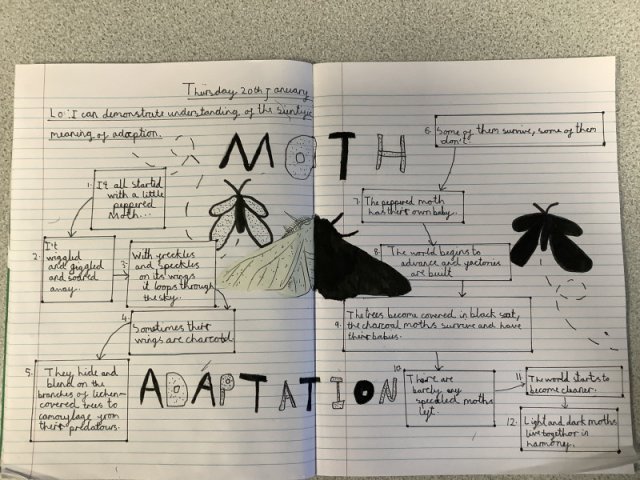 Thursday 20th January
Lo: I can demonstrate understanding of the
meaning of adaption.
MOTH
1. It all started
with a little
peppered
Moth...
2. It
wiggled
and giggled
and soared
away..
3. With freckles
and speckles
on its wings
it loops through
the sky..
4. Sometimes their
wings are charcoal
5. They hide and
blend on the
branches of lichen-
covered trees to
camouflage from
their predators.
ADAPTATION
6. Some of them survive, some of them
don't.
7. The peppered moth
has their own baby..
8. The world begins to
advance and factories
are built
9. The trees become covered in black soot,
the charcoal moths survive and have
their babies.
10. There are
barely any
speckled moths
left.
11. The world starts to
become cleaner.
12. Light and dark moths
live together in
harmony.